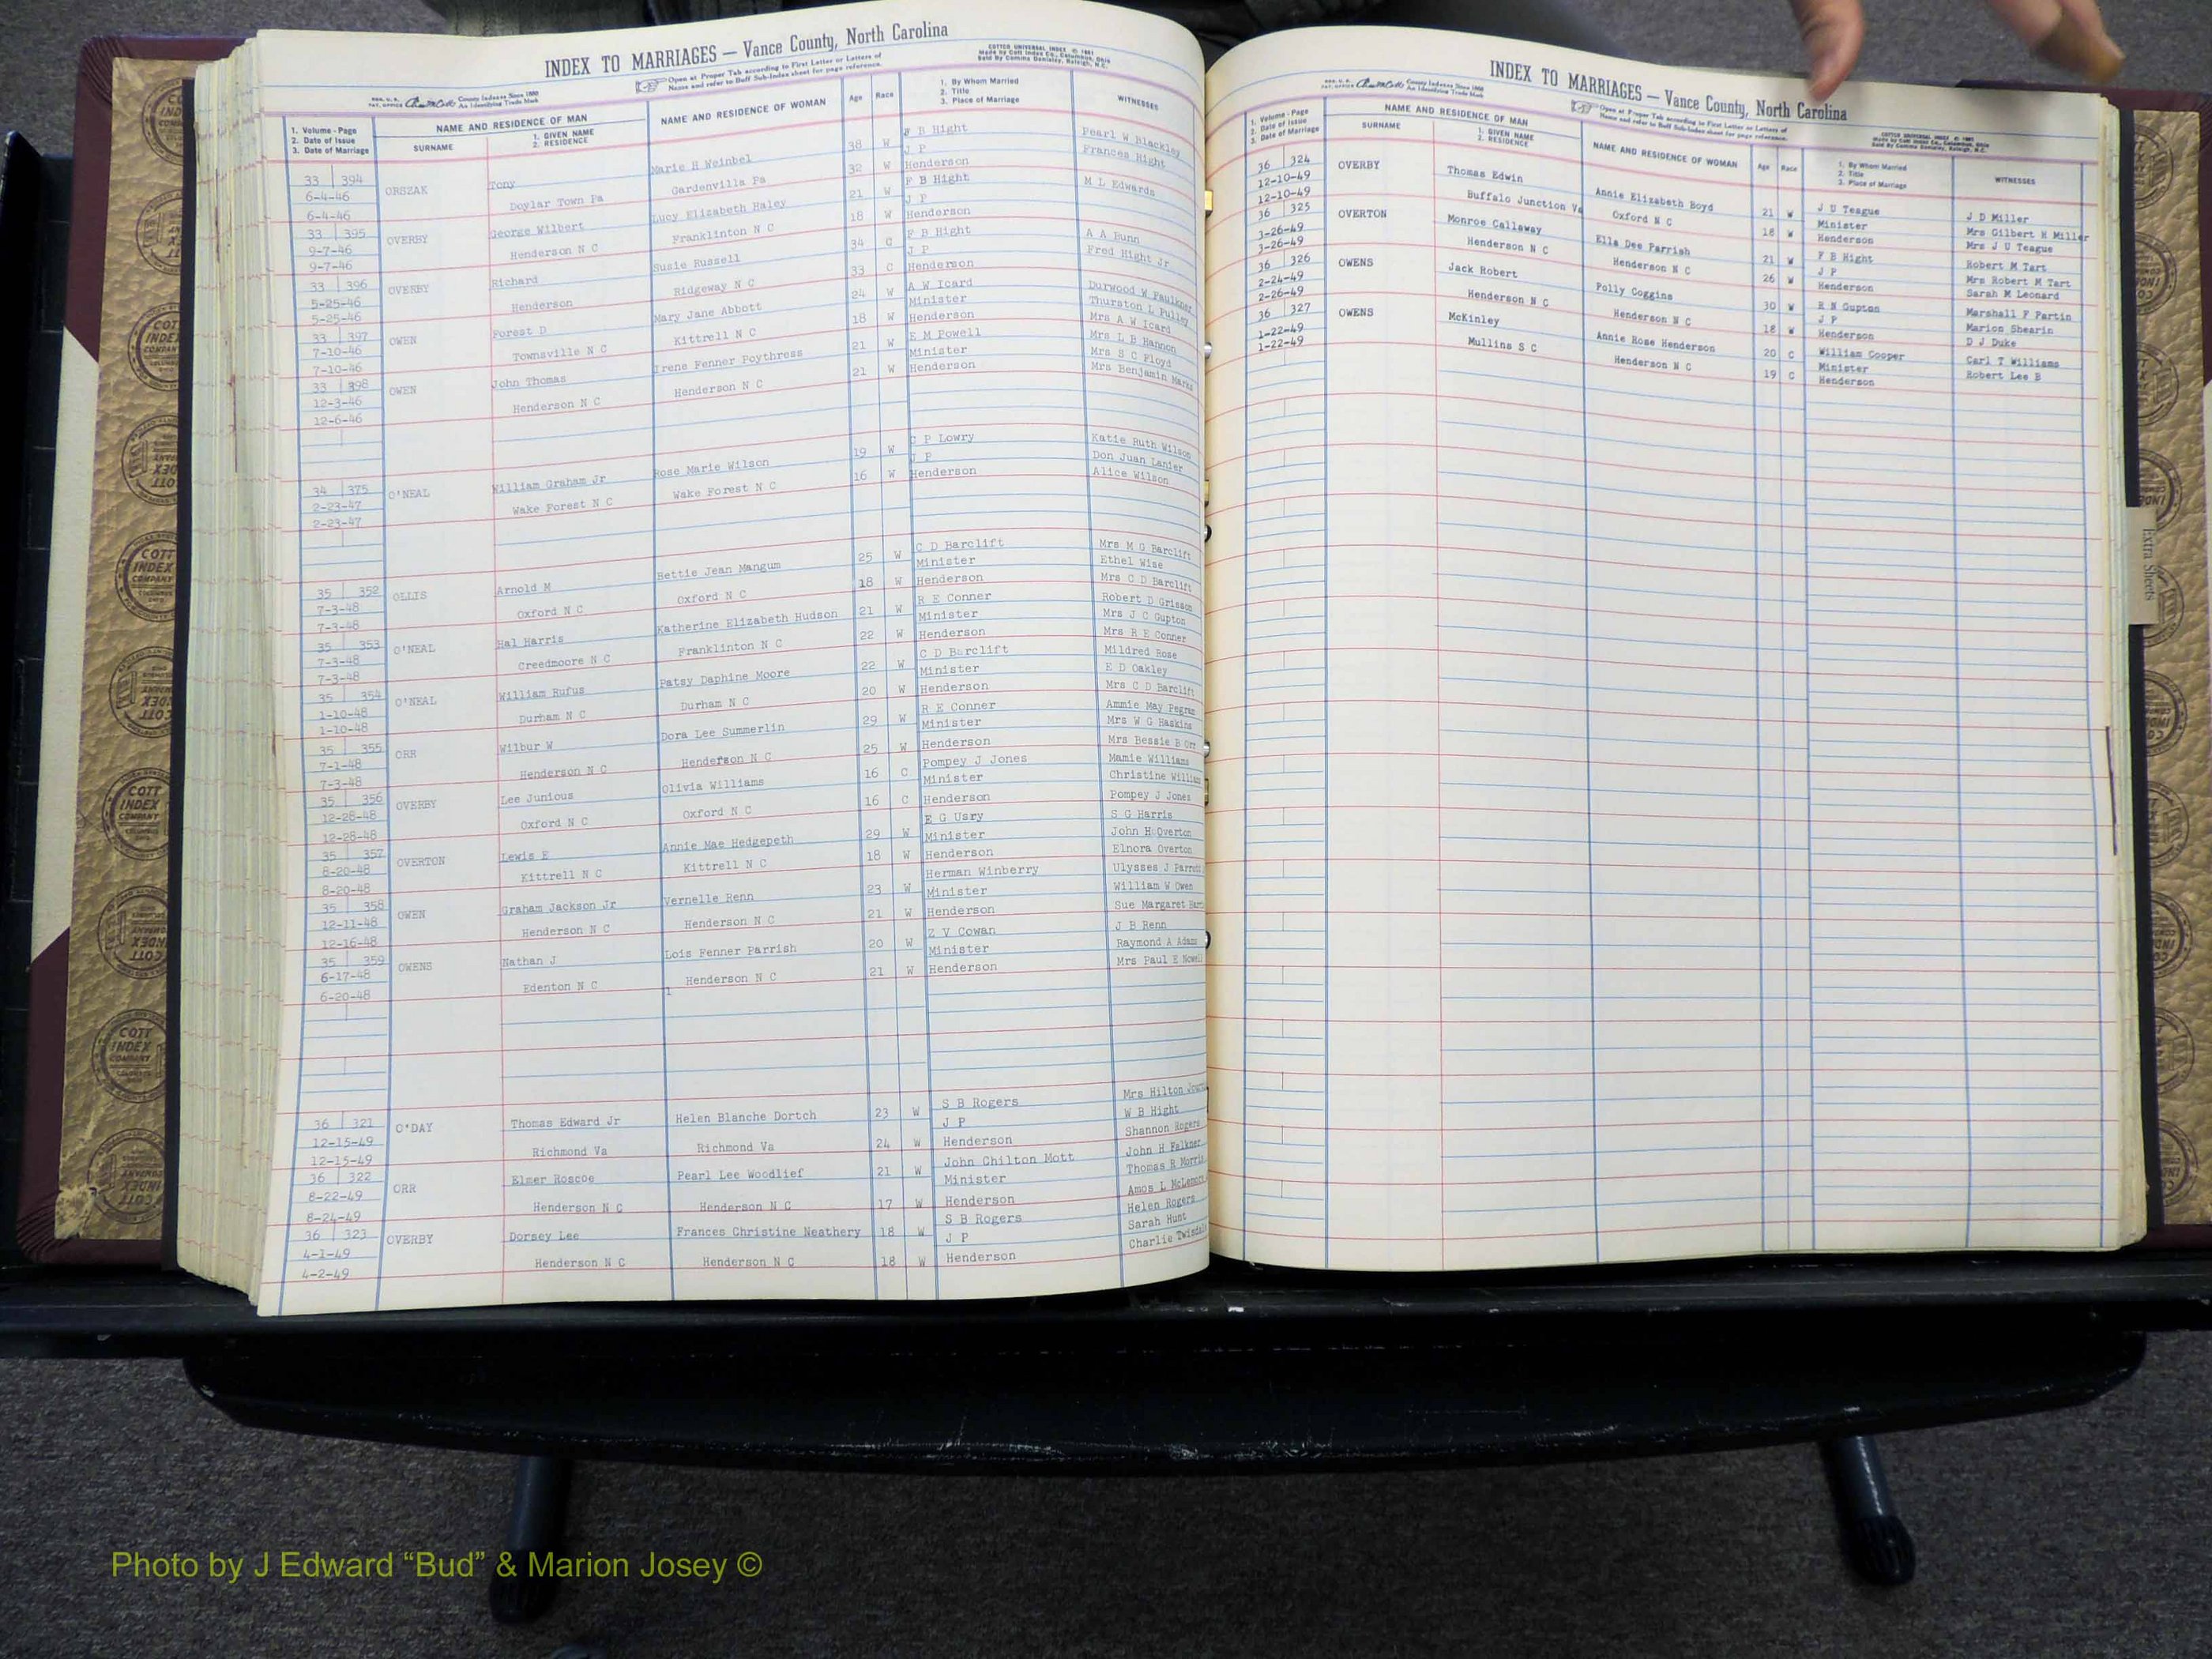 INDEX TO MARRIAGES — Vance County, North Carolina
COTTCO UNIVERSAL INDEX © 1961
Made by Cott Index Co., Columbus, Ohio
Sold By Commx Danieley, Raleigh, N.C.
REG. U. S. PAT. OFFICE County Indexes Since 1888
An Identifying Trade Mark
Open at Proper Tab according to First Letter or Letters of
Name and refer to Buff Sub-Index sheet for page reference.
1. Volume - Page
2. Date of Issue
3. Date of Marriage
NAME AND RESIDENCE OF MAN
SURNAME
1. GIVEN NAME
2. RESIDENCE
NAME AND RESIDENCE OF WOMAN
Age
Race
1. By Whom Married
2. Title
3. Place of Marriage
WITNESSES
33 394 ORSZAK Tony Marie H Weinbel 38 W F B Hight Pearl W Blackley
6-4-46 Doylar Town Pa Gardenville Pa 32 W J P Frances Hight
6-4-46 Henderson
33 395 OVERBY George Wilbert Lucy Elizabeth Haley 21 W F B Hight M L Edwards
9-7-46 Henderson N C Franklinton N C 18 W J P
9-7-46 Henderson
33 396 OVERBY Richard Susie Russell 34 C F B Hight A A Bunn
5-25-46 Henderson Ridgeway N C 33 C J P Fred Hight Jr
5-25-46 Henderson
33 397 OWEN Forest D Mary Jane Abbott 24 W A W Icard Durwood W Faulkner
7-10-46 Townsville N C Kittrell N C 18 W Minister Thurston L Pulley
7-10-46 Henderson Mrs A W Icard
33 398 OWEN John Thomas Irene Fenner Poythress 21 W E M Powell Mrs L B Hannon
12-3-46 Henderson N C Henderson N C 21 W Minister Mrs S C Floyd
12-6-46 Henderson Mrs Benjamin Marks
34 375 O'NEAL William Graham Jr Rose Marie Wilson 19 W C P Lowry Katie Ruth Wilson
2-23-47 Wake Forest N C Wake Forest N C 16 W J P Don Juan Lanier
2-23-47 Henderson Alice Wilson
35 352 OLLIS Arnold M Bettie Jean Mangum 25 W C D Barclift Mrs M G Barclift
7-3-48 Oxford N C Oxford N C 18 W Minister Ethel Wise
7-3-48 Henderson Mrs C D Barclift
35 353 O'NEAL Hal Harris Katherine Elizabeth Hudson 21 W R E Conner Robert D Grissom
7-3-48 Creedmoore N C Franklinton N C 22 W Minister Mrs J C Gupton
7-3-48 Henderson Mrs R E Conner
35 354 O'NEAL William Rufus Patsy Daphine Moore 22 W C D Barclift Mildred Rose
1-10-48 Durham N C Durham N C 20 W Minister E D Oakley
1-10-48 Henderson Mrs C D Barclift
35 355 ORR Wilbur W Dora Lee Summerlin 29 W R E Conner Ammie May Pegram
7-1-48 Henderson N C Henderson N C 25 W Minister Mrs W G Haskins
7-3-48 Henderson Mrs Bessie B Orr
35 356 OVERBY Lee Junious Olivia Williams 16 C Pompey J Jones Mamie Williams
12-28-48 Oxford N C Oxford N C 16 C Minister Christine William
12-28-48 Henderson Pompey J Jones
35 357 OVERTON Lewis E Annie Mae Hedgepeth 29 W E G Usry S G Harris
8-20-48 Kittrell N C Kittrell N C 18 W Minister John H Overton
8-20-48 Henderson Elnora Overton
35 358 OWEN Graham Jackson Jr Vernelle Renn 23 W Herman Winberry Ulysses J Parrott
12-11-48 Henderson N C Henderson N C 21 W Minister William W Owen
12-16-48 Henderson Sue Margaret
35 359 OWENS Nathan J Lois Fenner Parrish 20 W Z V Cowan J B Renn
6-17-48 Edenton N C Henderson N C 21 W Minister Raymond A Adams
6-20-48 Henderson Mrs Paul E Nowell
36 321 O'DAY Thomas Edward Jr Helen Blanche Dortch 23 W S B Rogers Mrs Hilton
12-15-49 Richmond Va Richmond Va 24 W J P W B Hight
12-15-49 Henderson Shannon Rogers
36 322 ORR Elmer Roscoe Pearl Lee Woodlief 21 W John Chilton Mott John H Falkner
8-22-49 Henderson N C Henderson N C 17 W Minister Thomas R Morris
8-24-49 Henderson Amos L
36 323 OVERBY Dorsey Lee Frances Christine Neathery 18 W S B Rogers Helen Rogers
4-1-49 Henderson N C Henderson N C 18 W J P Sarah Hunt
4-2-49 Henderson Charlie Twisdale
INDEX TO MARRIAGES — Vance County, North Carolina
COTTCO UNIVERSAL INDEX © 1961
Made by Cott Index Co., Columbus, Ohio
REG. U. S. PAT. OFFICE County Indexes Since 1888
An Identifying Trade Mark
Open at Proper Tab according to First Letter or Letters of
Name and refer to Buff Sub-Index sheet for page reference.
1. Volume - Page
2. Date of Issue
3. Date of Marriage
NAME AND RESIDENCE OF MAN
SURNAME
1. GIVEN NAME
2. RESIDENCE
NAME AND RESIDENCE OF WOMAN
Age
Race
1. By Whom Married
2. Title
3. Place of Marriage
WITNESSES
36 324 OVERBY Thomas Edwin Annie Elizabeth Boyd 21 W J U Teague J D Miller
12-10-49 Buffalo Junction Va Oxford N C 18 W Minister Mrs Gilbert H Miller
12-10-49 Henderson Mrs J U Teague
36 325 OVERTON Monroe Callaway Ella Dee Parrish 21 W F B Hight Robert M Tart
3-26-49 Henderson N C Henderson N C 26 W J P Mrs Robert M Tart
3-26-49 Henderson Sarah M Leonard
36 326 OWENS Jack Robert Polly Coggins 30 W R N Gupton Marshall F Partin
2-24-49 Henderson N C Henderson N C 18 W J P Marion Shearin
2-26-49 Henderson D J Duke
36 327 OWENS McKinley Annie Rose Henderson 20 C William Cooper Carl T Williams
1-22-49 Mullins S C Henderson N C 19 C Minister Robert Lee B
1-22-49 Henderson
Extra Sheets
COTT INDEX COMPANY
Photo by J Edward “Bud” & Marion Josey ©